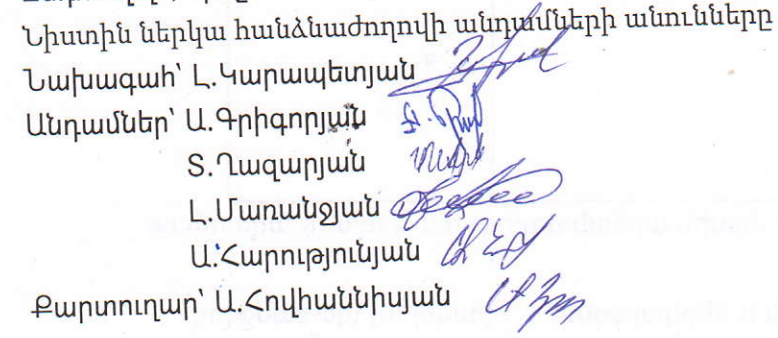 Նիստին ներկա հանձնաժողովի անդամների անունները
Նախագահ՝ Լ.Կարապետյան
Անդամներ՝ Ա.Գրիգորյան
Տ.Ղազարյան
Լ.Մառանջյան
Ա.Հարությունյան
Քարտուղար՝ Ա.Հովհաննիսյան